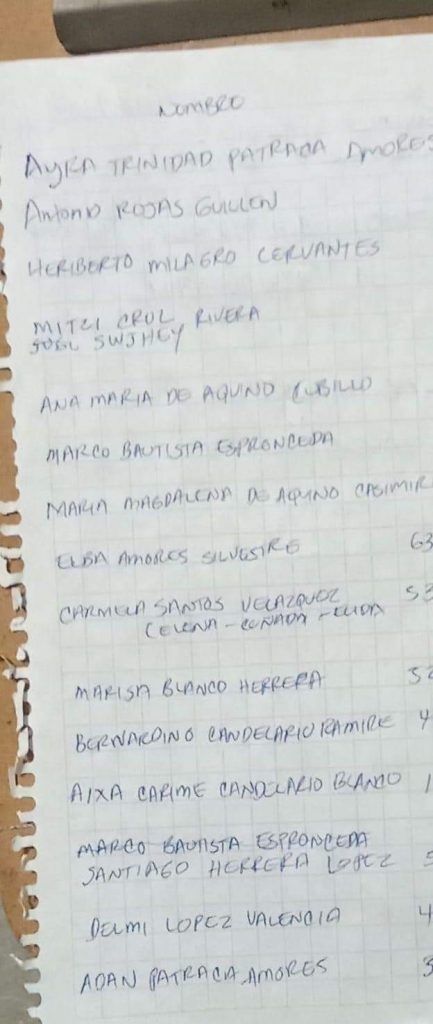 NOMBRE
AYRA TRINIDAD PATRACA AMORES
Antonio ROJAS GUILLEN
HERIBERTO MILAGRO CERVANTES
MITZI CRUZ RIVERA
ANA MARIA DE AQUINO CUBILLO
MARCO BAUTISTA ESPRONCEDA
MARIA MAGDALENA DE AQUINO CASIMIR
ELBA AMORES SILVESTRE 63
CARMELA SANTOS VELAZQUEZ 53
CELENA - CUÑADA -
MARISA BLANCO HERRERA
BERNARDINO CANDELARIO RAMIRE 4
AIXA CARIME CANDELARIO BLANCO 1
MARCO BAUTISTA ESPRONCEDA
SANTIAGO HERRERA LOPEZ
DELMI LOPEZ VALENCIA 4
ADAN PATRACA AMORES 3